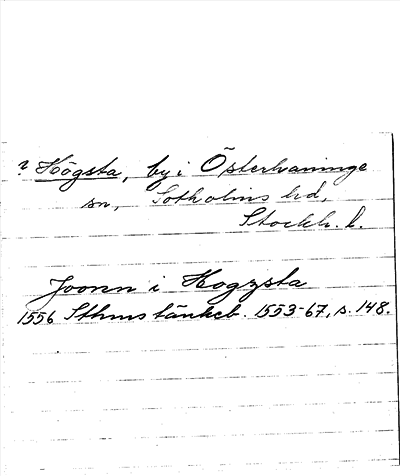 ? Högsta, by i Österhaninge
sn, Sotholms hd,
Stockh. l.
Joonn i Hogzsta
1556 Sthms tänkeb. 1553-67, s. 148.